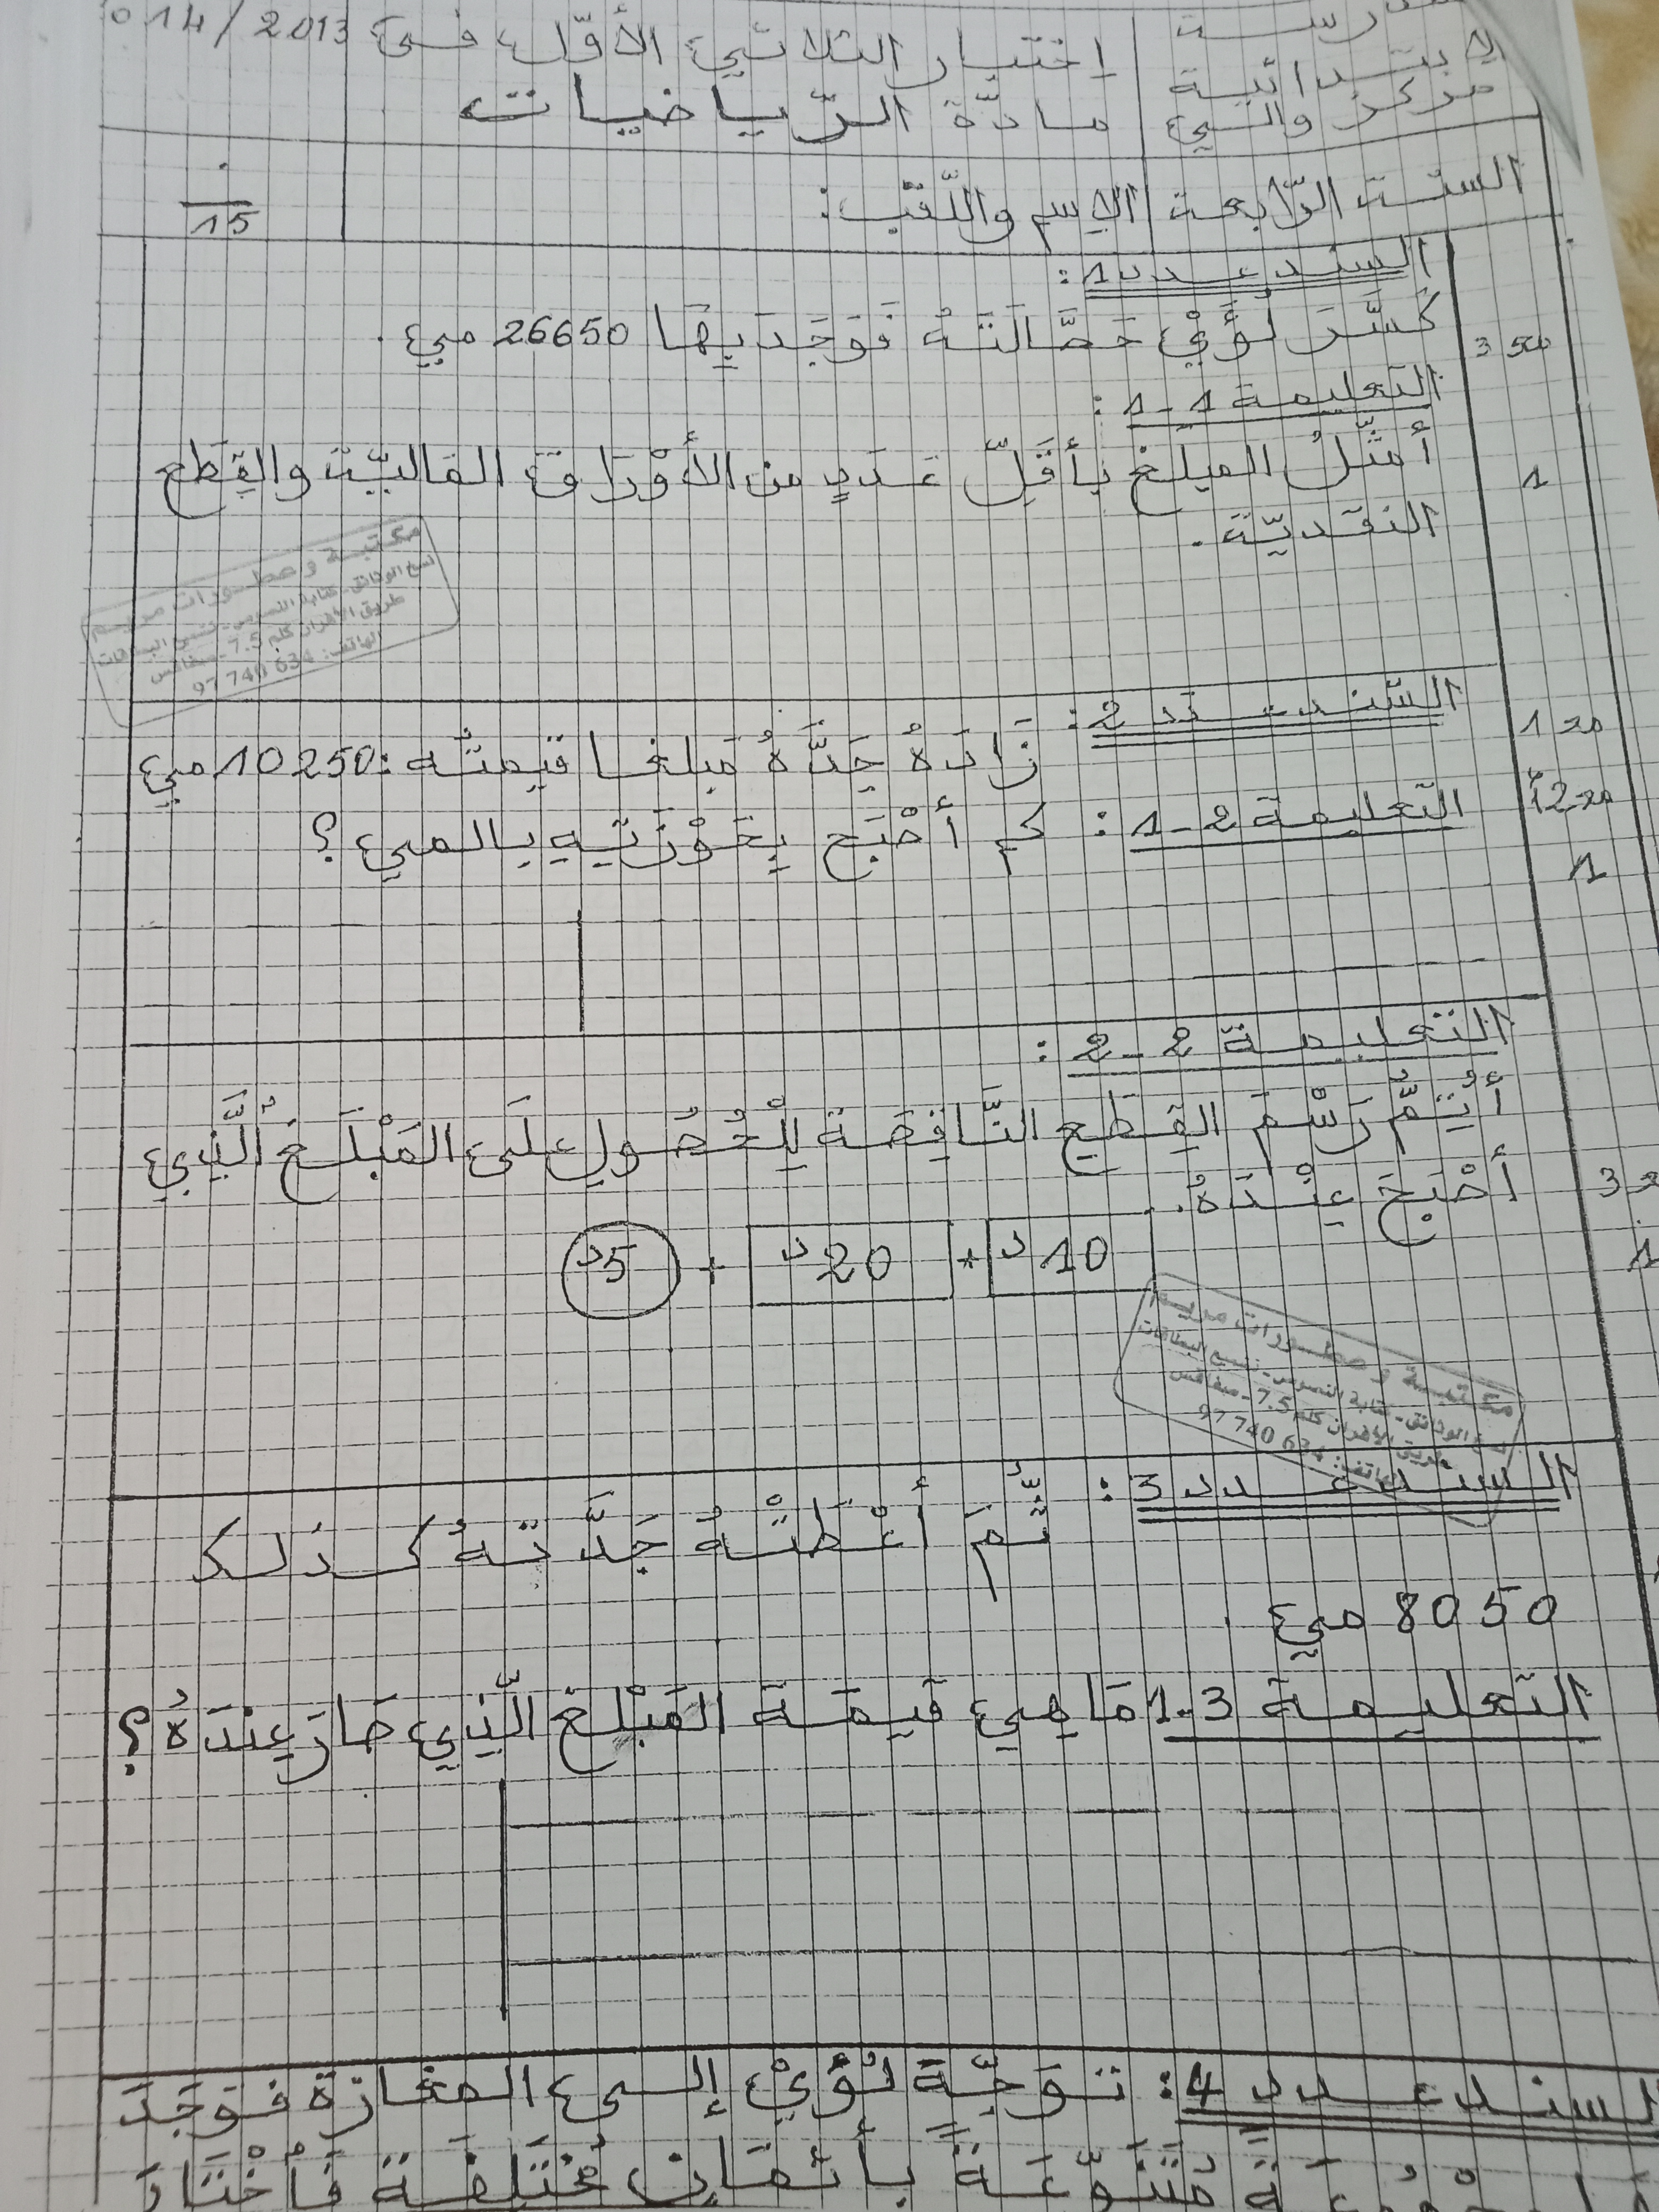 اختبار الثلاثي الأوّل في 014/2013
الابتدائية
مادّة الرّياضيات
مركز والي
السنة الرّابعة الاسم واللّقب:
15
السند عدد 1:
كَسَّرَ لُؤَيْ حَصَّالَتَهُ فَوَجَدَ بِهَا 26650 مي.
التعليمة 1-1:
أُمَثِّلُ المبلغ بأَقَلِّ عَدَدٍ من الأَوْرَاق الماليّة والقِطَع
1
النقديّة.
مكتبة و مطبورات مريم
نسخ الوثائق - كتابة النصوص - نسخ البطاقات
طريق الأفران كلم 7.5 - صفاقس
الهاتف: 97 740 634
السّند عدد 2: زَادَهُ جَدُّهُ مَبلغا قيمتُه: 10250 مي
التعليمة 2-1: كم أَصْبَح بِحَوْزَتِهِ بالمي؟
1
التعليمة 2-2:
أُتِمُّ رَسْمَ القِطَعِ النَّاقِصَة لِلْحُصُولِ علَى المَبْلَغِ الَّذِي
أَصْبَحَ عِنْدَهُ.
10د + 20د + 5د
1
مكتبة و مطبورات مريم
نسخ الوثائق - كتابة النصوص - نسخ البطاقات
طريق الأفران كلم 7.5 - صفاقس
الهاتف: 97 740 634
السند عدد 3: ثُمَّ أَعْطَتْهُ جَدَّتهُ كذلك
8050 مي.
التعليمة 3-1 مَا هِي قيمَة المَبْلغ الّذِي صَارَ عِندَهُ؟
السند عدد 4: تَوَجَّهَ لُؤَيْ إلى المغازة فوَجَدَ
مُتَنَوِّعَةً بأَثمَانٍ مُخْتَلِفَة فَاخْتَارَ